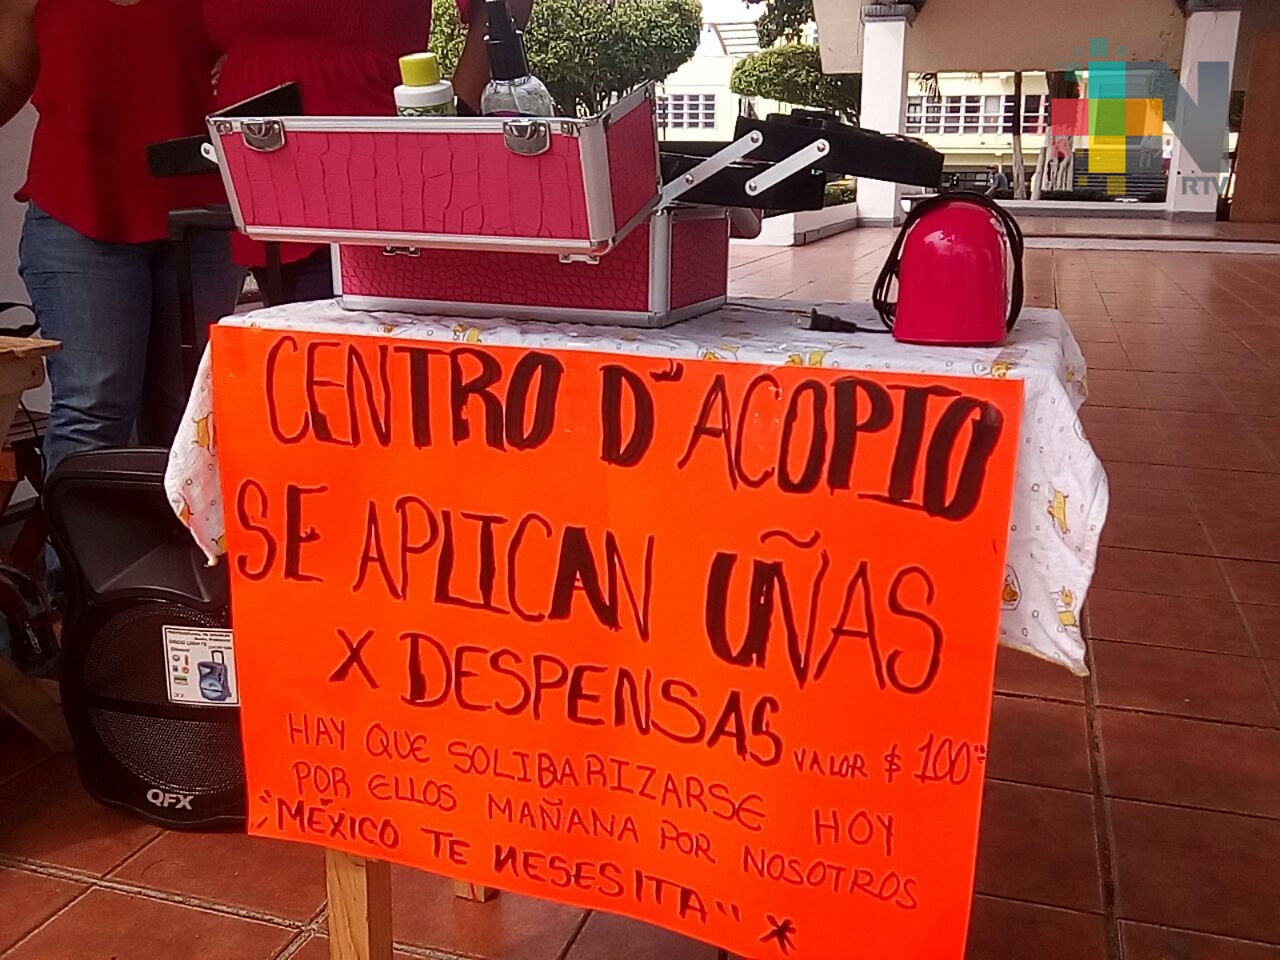 CENTRO D" ACOPIO
SE APLICAN UÑAS
X DESPENSAS VALOR $ 100°°
HAY QUE SOLIBARIZARSE HOY
POR ELLOS MAÑANA POR NOSOTROS
"MÉXICO TE NESESITA" *
QFX
N
RTV